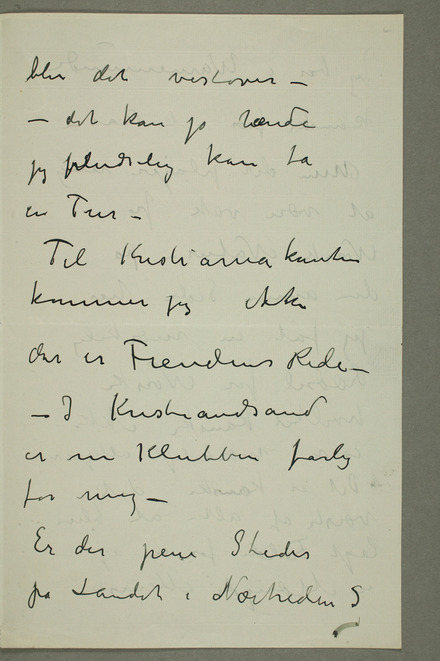 blir det vestover –
– det kan jo hænde
jeg pludselig kan ta
en Tur –
Til Kristianiakanten
kommer jeg ikke
der er Fiendens Rede –
– I Kristiandsand
er nu Klubben farlig
for mig –
Er der pene Steder
på Landet i Nærheden?